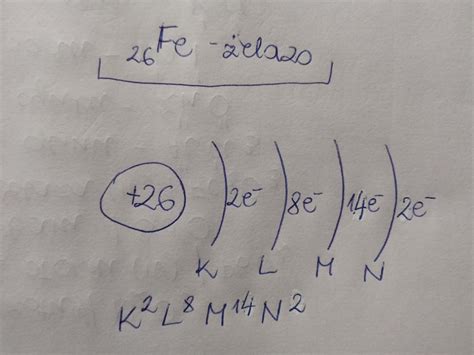 ₂₆Fe - żelazo
+26 2e⁻ 8e⁻ 14e⁻ 2e⁻
K L M N
K² L⁸ M¹⁴ N²